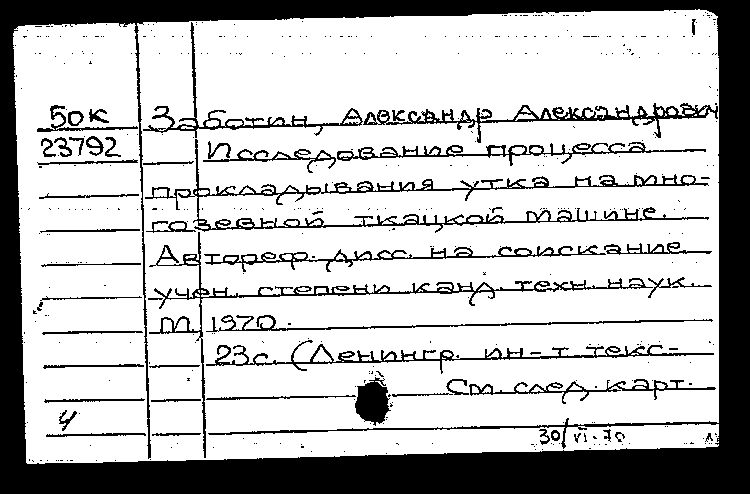 1
50К Заботин, Александр Александрович
23792 Исследование процесса
прокладывания утка на мно-
гозевной ткацкой машине.
Автореф. дисс. на соискание
учен. степени канд. техн. наук.
М, 1970.
23с. (Ленингр. ин-т текс-
См. след. карт.
4
30/VI-70